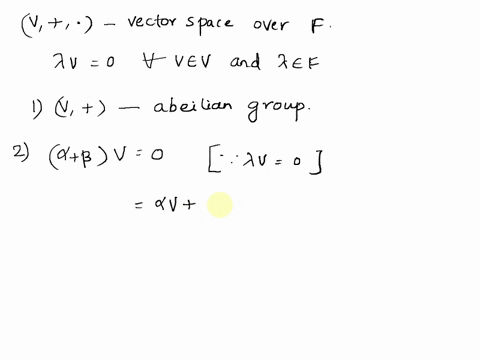 (V, +, ·) – vector space over F.
λv = 0 ∀ v∈V and λ∈F
1) (V, +) — abeilian group.
2) (α+β) V = 0 [∵ λv = 0]
= αV +